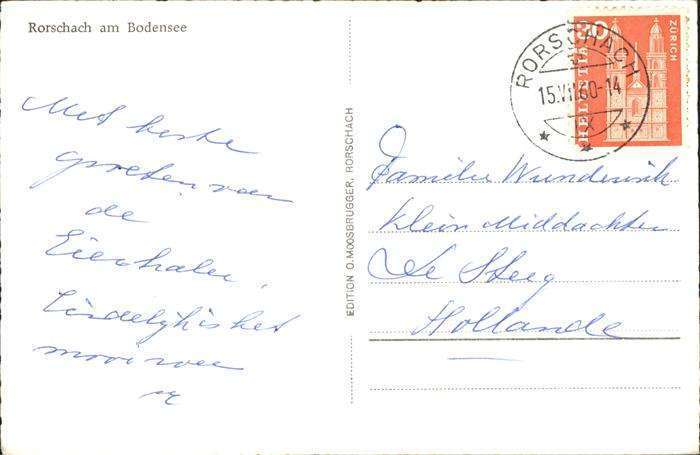 Rorschach am Bodensee
Met beste
groeten van
de
Eierhalen.
Eindelijk is het
mooi weer
EDITION O. MOOSBRUGGER, RORSCHACH
HELVETIA
ZÜRICH
RORSCHACH
15.VII.60-14
Familie Wunderink
Klein Middachten
De Steeg
Hollande